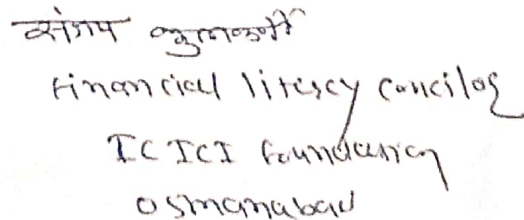 संजय कुलकर्णी
Financial literscyConcilor
ICICI Foundation
Osmanabad